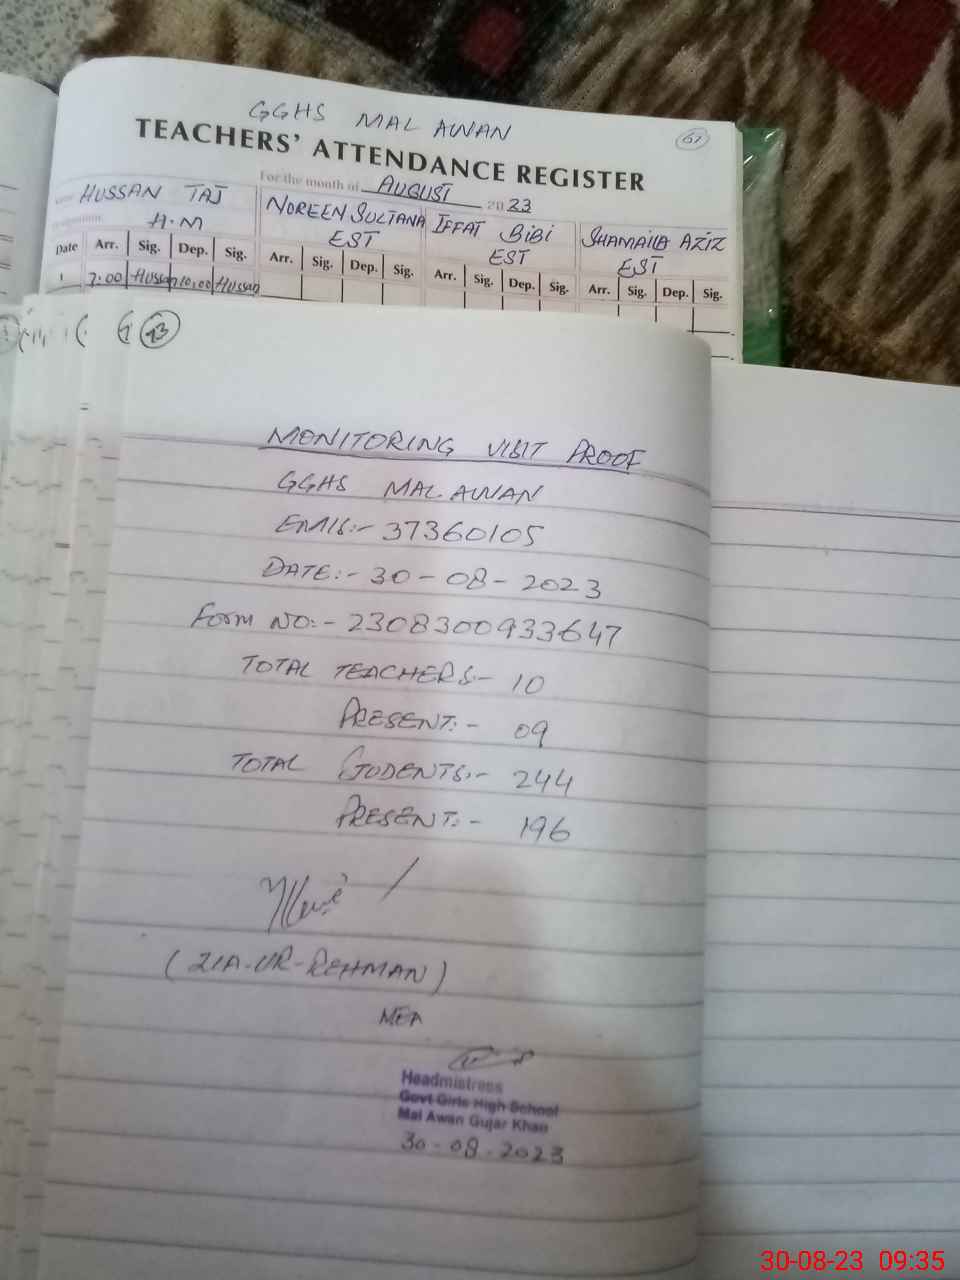 GGHS MAL AWAN
67
TEACHERS' ATTENDANCE REGISTER
For the month of AUGUST 2023
HUSSAN TAJ NOREEN SULTANA IFFAT BIBI SHAMAILA AZIZ
H.M EST EST EST
Date Arr. Sig. Dep. Sig. Arr. Sig. Dep. Sig. Arr. Sig. Dep. Sig. Arr. Sig. Dep. Sig.
1 7:00 Hussan 10:00 Hussan
93
MONITORING VISIT PROOF
GGHS MAL AWAN
EMIS:- 37360105
DATE:- 30-08-2023
Form NO:- 2308300933647
TOTAL TEACHERS:- 10
PRESENT:- 09
TOTAL STUDENTS:- 244
PRESENT:- 196
(ZIA-UR-REHMAN)
MEA
Headmistress
Govt Girls High School
Mal Awan Gujar Khan
30-08-2023
30-08-23 09:35